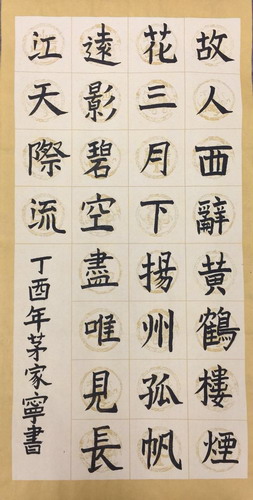 故人西辭黃鶴樓煙
花三月下揚州孤帆
遠影碧空盡唯見長
江天際流
丁酉年茅家寧書